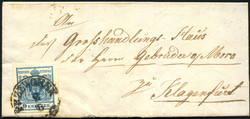 An
das Großhandlungs-Haus
der Herren Gebrüder v. Moro
zu Klagenfurt